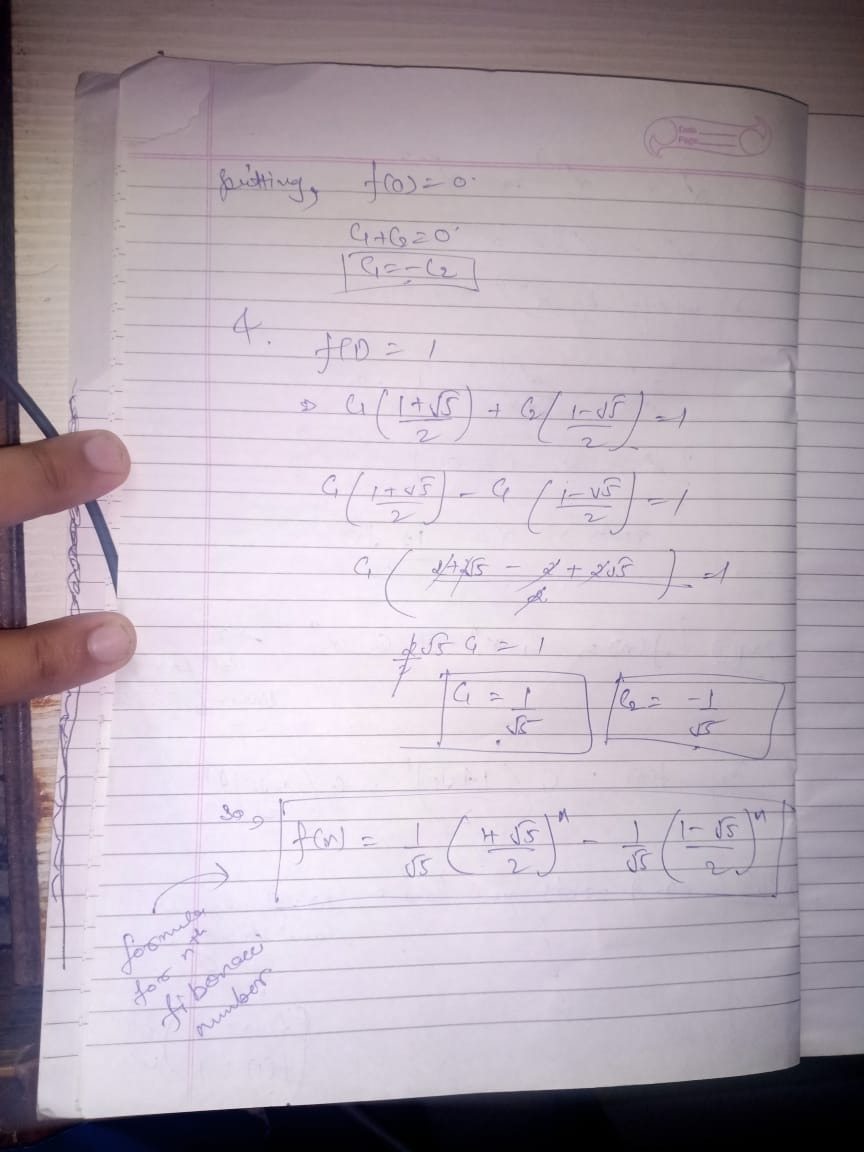 Date
Page
putting, f(0) = 0.
C1+C2=0
C1=-C2
&.
f(1) = 1
⇒ C1(1+√5/2) + C2(1-√5/2) = 1
C1(1+√5/2) - C1(1-√5/2) = 1
C1(2+2√5 - 2 + 2√5/2) = 1
√5 C1 = 1
C1 = 1/√5 C2 = -1/√5
So, f(n) = 1/√5 (1+√5/2)^n - 1/√5 (1-√5/2)^n
formula
for nth
fibonacci
number